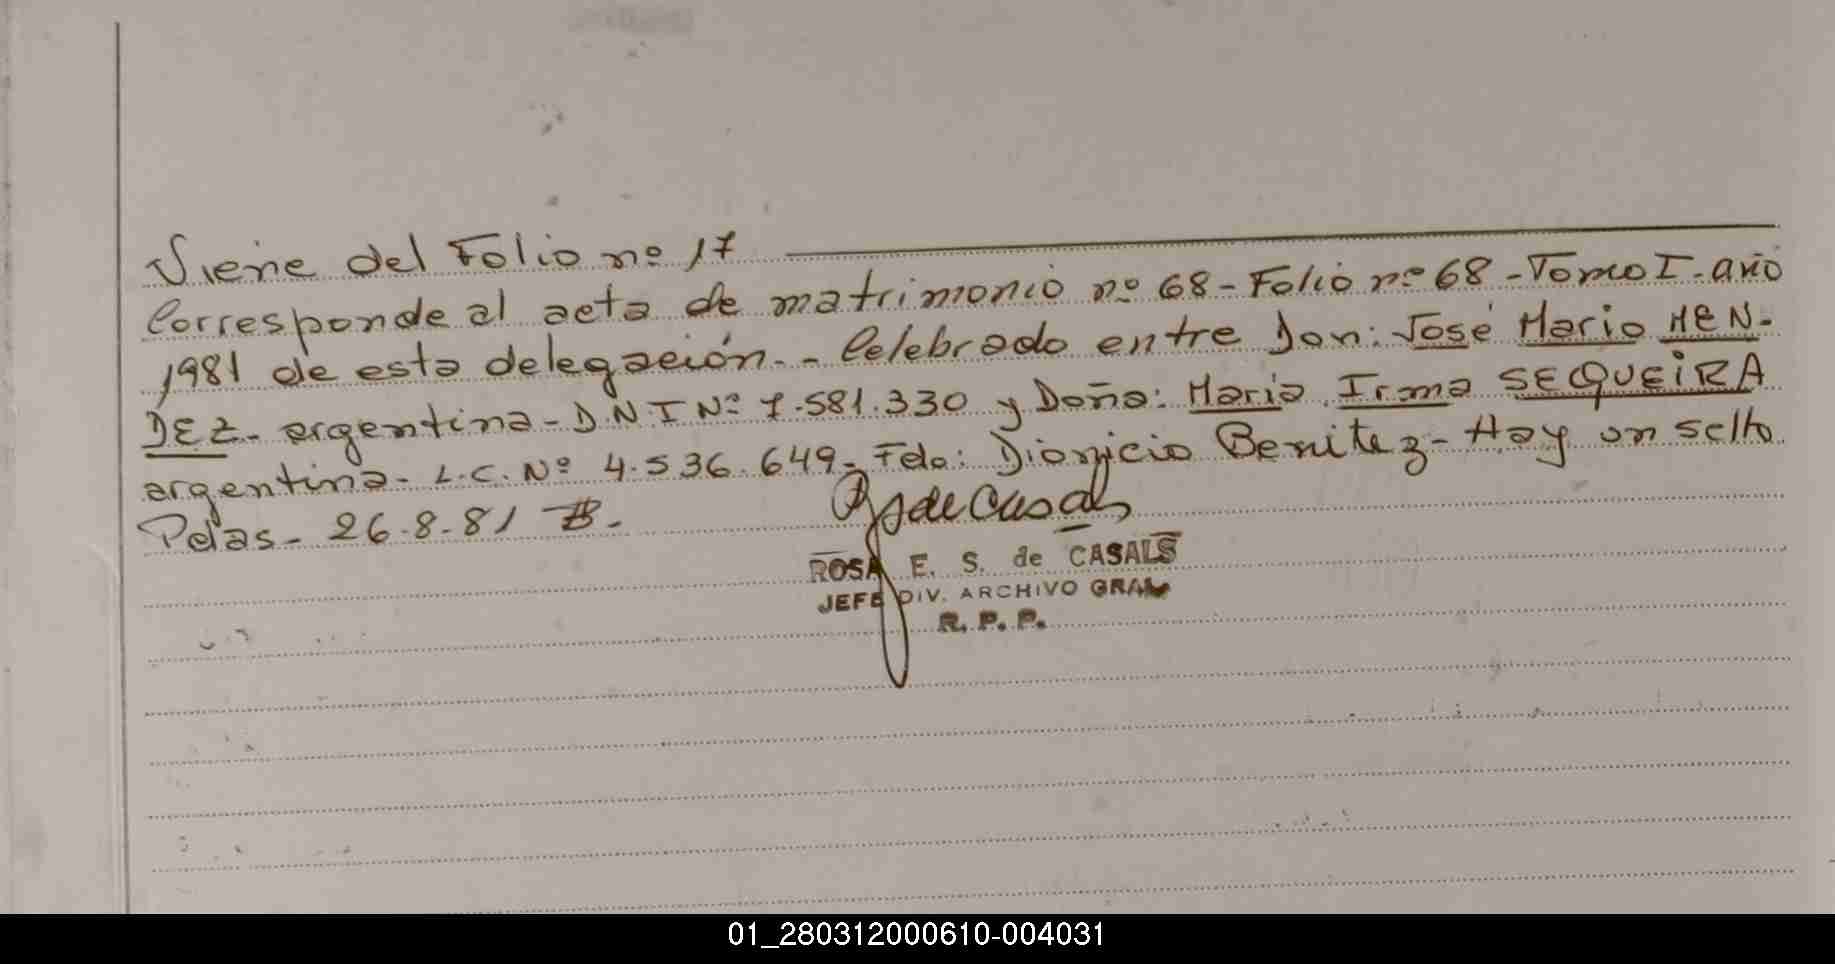 Viene del Folio nº 17
Corresponde al acta de matrimonio nº 68 - Folio nº 68 - Tomo I. año
1981 de esta delegación. - Celebrado entre Don: José Mario MEN-
DEZ - argentina - D.N.I Nº 7.581.330 y Doña: Maria Irma SEQUEIRA
argentina - L.C. Nº 4.536.649 - Fdo: Dionicio Benitez - Hay un sello
Pdas - 26-8-81
R S de Casals
ROSA E. S. de CASALS
JEFE DIV. ARCHIVO GRAL
R. P. P.
01_280312000610-004031